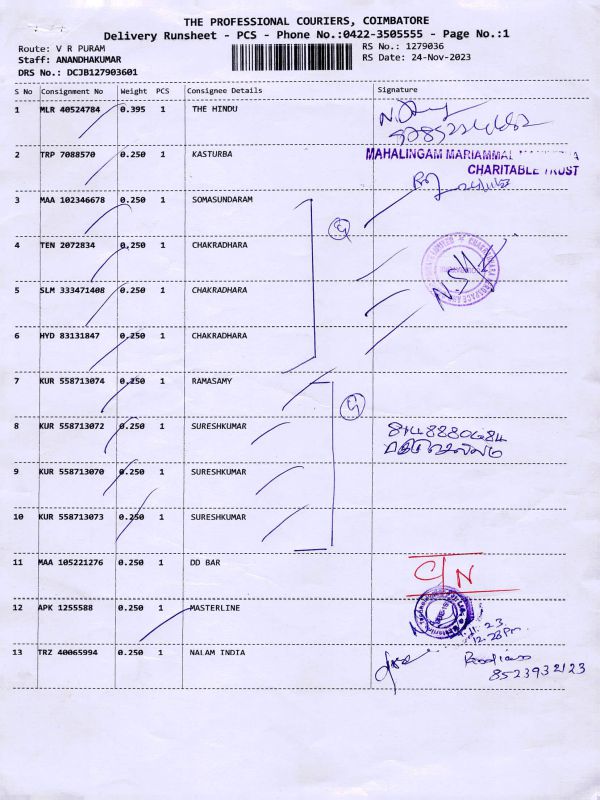 THE PROFESSIONAL COURIERS, COIMBATORE
Delivery Runsheet - PCS - Phone No.:0422-3505555 - Page No.:1
Route: V R PURAM
RS No.: 1279036
Staff: ANANDHAKUMAR
RS Date: 24-Nov-2023
DRS No.: DCJB127903601
S No Consignment No Weight PCS Consignee Details Signature
1 MLR 40524784 0.395 1 THE HINDU
2 TRP 7088570 0.250 1 KASTURBA
MAHALINGAM MARIAMMAL
CHARITABLE TRUST
3 MAA 102346678 0.250 1 SOMASUNDARAM
4 TEN 2072834 0.250 1 CHAKRADHARA
5 SLM 333471408 0.250 1 CHAKRADHARA
6 HYD 83131847 0.250 1 CHAKRADHARA
7 KUR 558713074 0.250 1 RAMASAMY
8 KUR 558713072 0.250 1 SURESHKUMAR
9 KUR 558713070 0.250 1 SURESHKUMAR
10 KUR 558713073 0.250 1 SURESHKUMAR
11 MAA 105221276 0.250 1 DD BAR
C/N
12 APK 1255588 0.250 1 MASTERLINE
12.28 Pm
13 TRZ 40065994 0.250 1 NALAM INDIA
8523932123